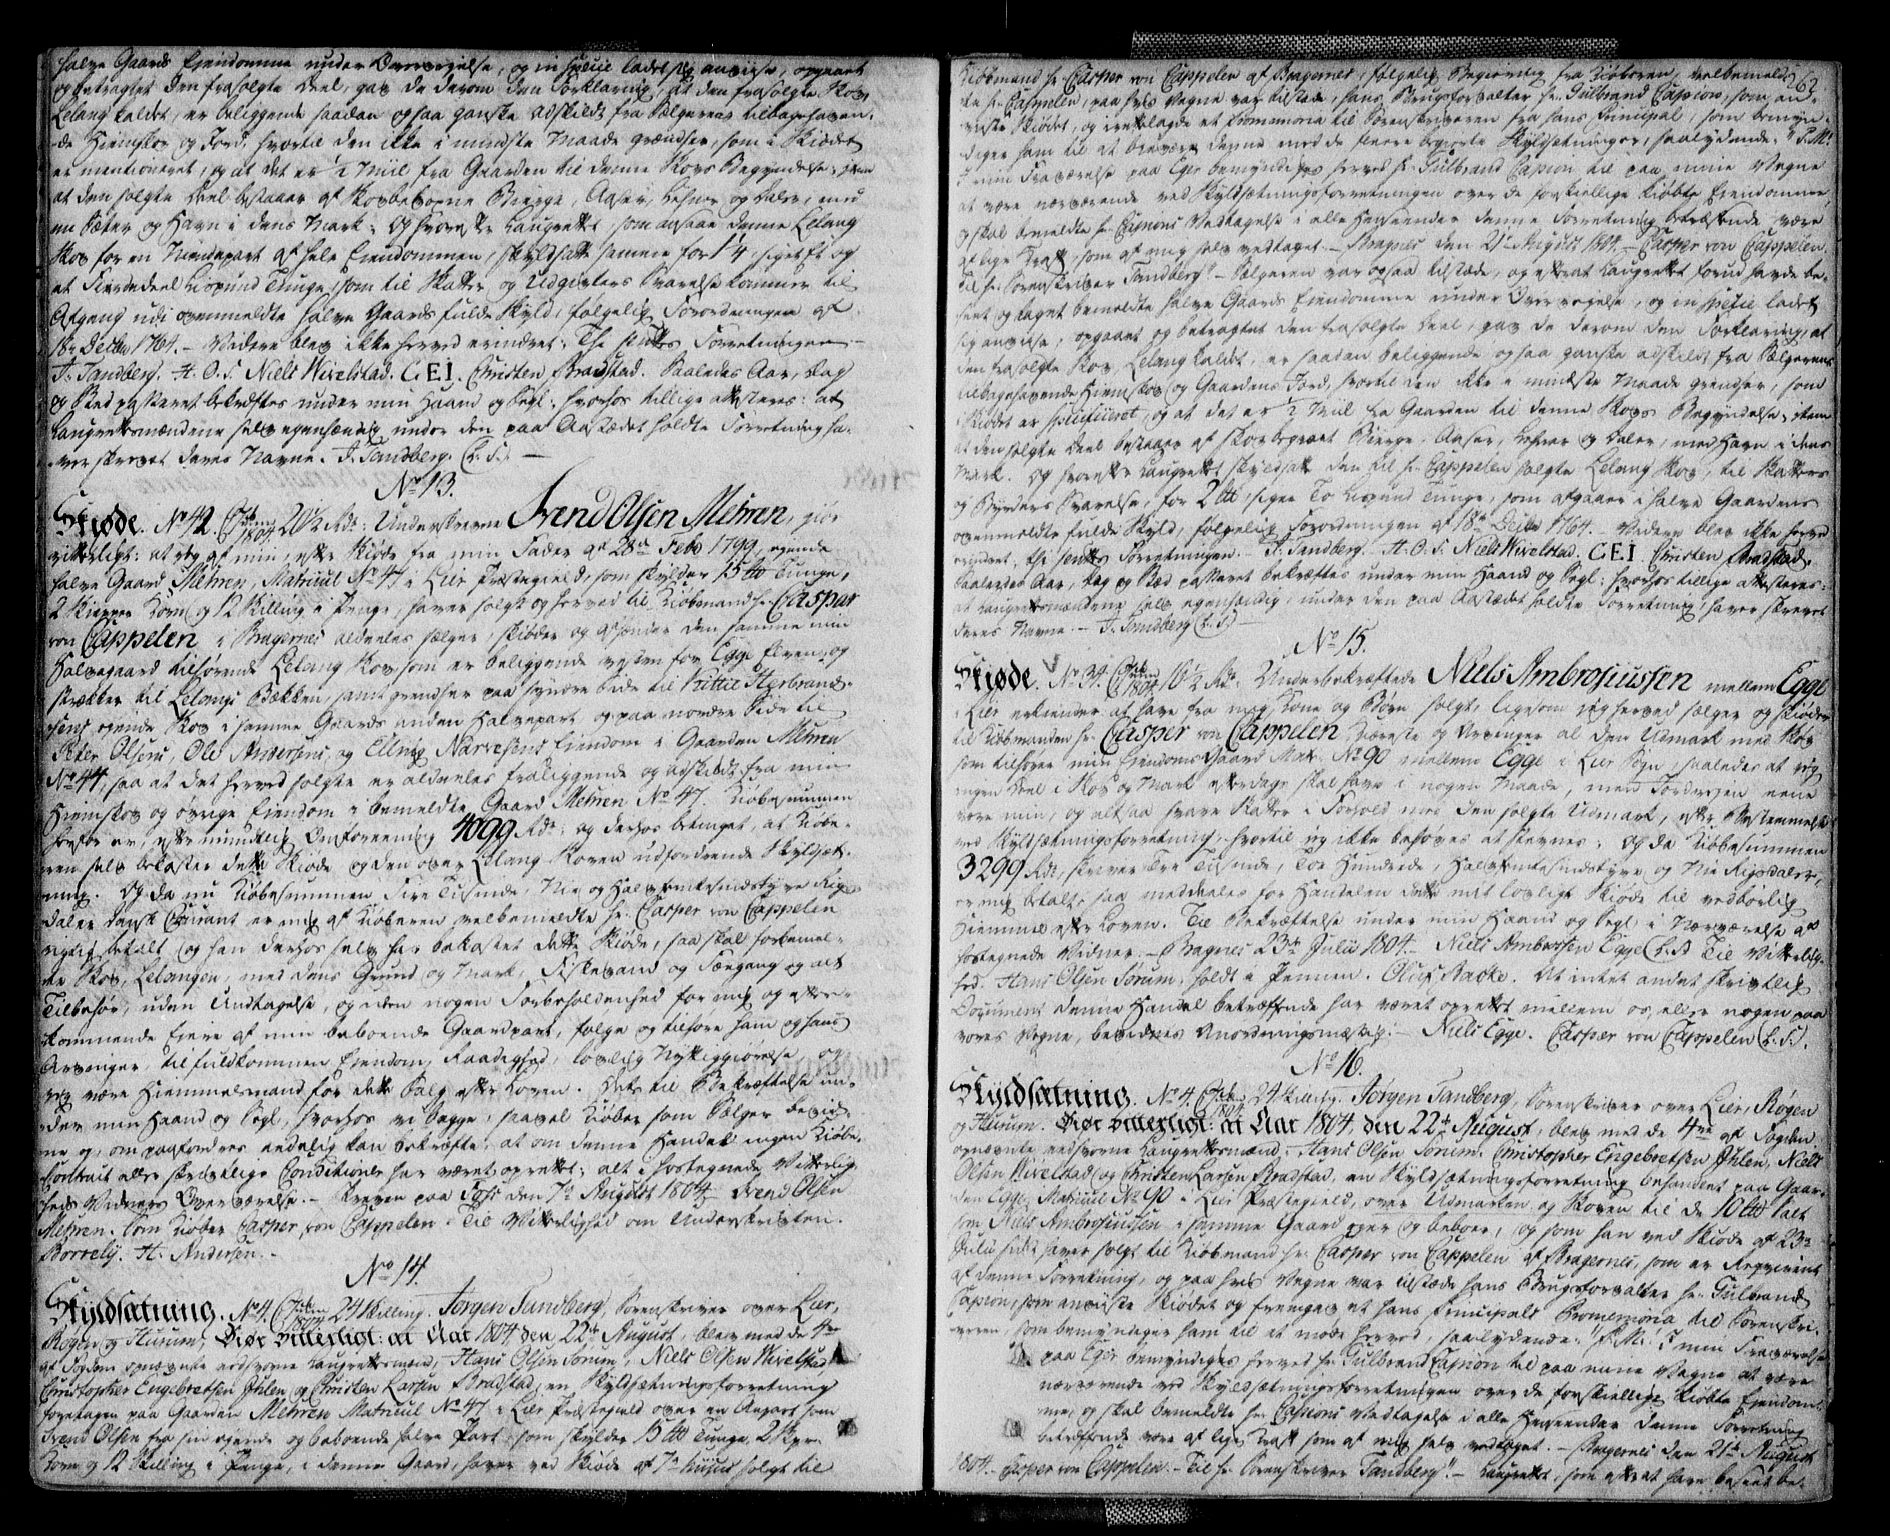 halve Gaards Eiendomme under Overveielse, og in specie ladet sig anviise, opgaaet
og betragtet den frasolgte Deel, gav de derom den Forklaring, at den frasolgte Skov
Lelang kaldet, er beliggende saadan og saa ganske adskildt fra Sælgerens tilbagehaven-
de Hiemskov og Jord, hvortil den ikke i mindste Maade grændser, som i Skiødet
er mentioneret, og at det er ½ Miil fra Gaarden til denne Skovs Begyndelse; item
at den solgte Deel bestaaer af Skovbegroene Bierge, Aaser, Lehner og Dale, med
en Sæter og Havn i dens Mark; Og hvorefter Laugrettet som ansaae denne Lelang
Skov for en Niendepart af hele Eiendommen, skyldsatte samme for 1¼, siger Et og
et Fierdedeel Lispund Tunge, som til Skatter og Udgivters Svarelse kommer til
Afgang udi ovenmeldte halve Gaards fulde Skyld, følgelig Forordningen af
18de Decbr 1764. – Videre blev ikke herved erindret; Thi sluttes Forretningen –
J. Sandberg. H. O. S. Niels Wivelstad. C E I. Christen Bradstad. Saaledes Aar, Dag
og Sted passeret bekræftes under min Haand og Segl; hvorhos tillige attesteres: at
Laugrettesmændene selv egenhændig under den paa Aastædet holdte Forretning ha-
ver skrevet deres Navne. J. Sandberg. (L. S.) –
No 13.
Skiøde. No 42. 1804. 20½ Rdr: Underskrevne Svend Olsen Mehren, giør
vitterligt: at jeg af min, efter Skiøde fra min Fader af 28de Febr 1799, eyende
halve Gaard Mehren, Matricul No 47 i Lier Præstegield, som skylder 15 ℔ Tunge,
2 Skiepper Korn og 12 Skilling i Penge, haver solgt og herved til Kiøbmand hr. Caspar
von Cappelen i Bragernes aldeeles sælger, skiøder og afhænder den samme min
Halvegaard tilhørende Lelang Skov som er beliggende vesten for Egge Elven, og
strækker til Lelangs Bækken, samt grendser paa syndre Side til Kittil Herbrand-
sens eyende Skov i samme Gaards anden Halvepart og paa nordre Side til
Peter Olsens, Ole Andersens, og Elling Narvesens Eiendom i Gaarden Mehren
No 44, saa at det herved solgte er aldeeles fraliggende og adskildt fra min
Hiemskov og øvrige Eiendom i bemeldte Gaard Mehren No 47. Kiøbesummen
herfor er, efter mundtlig Overeenkomst 4099 Rdr: og derhos betinget, at Kiøbe-
ren selv bekoster dette Skiøde og den over Lelang Skoven udfordrende Skyldsæt-
ning. Og da nu Kiøbesummen Fire Tusinde, Nie og Halvfemtesindstyve Rigs-
daler dansk Courant er mig af Kiøberen velbemeldte hr. Casper von Cappelen
rigtig betalt og han derhos selv har bekostet dette Skiøde, saa skal forbemel-
te Skov, Lelangen, med dens Grund og Mark, Fiskevand og Færgang og alt
Tilbehør, uden Undtagelse, og uden nogen Forbeholdenhed for mig og efter-
kommende Eiere af min beboende Gaardpart, følge og tilhøre ham og hans
Arvinger, til fuldkommen Eiendom, Raadighed, lovlig Nyttiggiørelse, og
jeg være Hiemmelsmand for dette Salg efter Loven. Dets til Bekræftelse un-
der min Haand og Segl, hvorhos vi begge, saavel Kiøber som Sælger bevid-
ne og, om paafordres eedelig kan bekræfte: at om denne Handel ingen Kiøbe-
Contract eller skriftlige Conditioner har været oprettet; alt i hostegnede Vitterlig-
heds Vidners Overværelse. – Skreven paa Foss den 7de August 1804. Svend Olsen
Mehren. Som Kiøber Casper von Cappelen. Til Vitterlighed om Underskriften.
Borrely. H. Andersen. –
No 14.
Skyldsætning. No 4. 1804. 24 Skilling. Jørgen Sandberg, Sorenskriver over Lier,
Røgen og Hurum, Giør Vitterligt: at Aar 1804 den 22de August, blev med de 4re
af Fogden opnævnte eedsvorne Laugrettesmænd, Hans Olsen Sorum, Niels Olsen Wivelstad,
Christopher Engebretsen Ihlen og Christen Larsen Bradstad, en Skyldsætningsforretning
foretagen paa Gaarden Mehren Matricul No 47 i Lier Præstegield over en Anpart som
Svend Olsen fra sin eyende og beboende halve Part, som skylder 15 ℔ Tunge, 2 Skpr.
Korn og 12 Skilling i Penge, i denne Gaard, haver ved Skiøde af 7de hujus solgt til
262
Kiøbmand hr. Casper von Cappelen af Bragernes, følgelig Begiering fra Kiøberen, velbemeld-
te hr. Cappelen, paa hvis Vegne var tilstæde, hans Brugsforvalter hr. Gulbrand Capion, som an-
viiste Skiødet, og irettelagde et Promemoria til Sorenskriveren fra hans Principal, som bemyn-
diger ham til at bievære denne med de fleere begierte Skyldsetninger, saalydende: "P. M:
I min Fraværelse paa Eger bemyndiges herved hr. Gulbrand Capion til paa mine Vegne
at være nærværende ved Skyldsætningsforretningen over de forskiellige kiøbte Eiendomme,
og skal bemeldte hr. Capions Vedtagelse i alle Henseender denne Forretning betræffende være
af lige Kraft, som af mig selv vedtaget. – Bragnes den 21de August 1804. – Casper von Cappelen.
Til hr. Sorenskriver Sandberg". – Sælgeren var og saa tilstæde, og efterat Laugrettet forud havde be-
seet og taget bemeldte halve Gaards Eiendomme under Overveielse, og in specie ladet
sig anviise, opgaaet og betragtet den frasolgte Deel, gav de derom den Forklaring, at
den frasolgte Skov Lelang kaldet, er saadan beliggende og saa ganske adskildt fra Sælgerens
tilbagehavende Hiemskov og Gaardens Jord, hvortil den ikke i mindste Maade grendser, som
Skiødet er specificeret, og at det er ½ Miil fra Gaarden til denne Skovs Begyndelse; item
at den solgte Deel bestaaer af skovbegroet Bierge, Aaser, Lehner og Dale, med Havn i dens
Mark. Og hvorefter Laugrettet skyldsatte den til hr. Cappelen solgte Lelang Skov, til Skatters
og Byrders Svarelse, for 2 ℔, siger To Lispund Tunge, som afgaaer i halve Gaardens
ovenmeldte fulde Skyld, følgelig Forordningen af 18de Decbr 1764. – Videre blev ikke herved
erindret, thi sluttes Forretningen. – J. Sandberg. H. O. S. Niels Wivelstad. C E I Christen Bradstad.
Saaledes Aar, Dag og Sted passeret bekræftes under min Haand og Segl; hvorhos tillige attesteres:
at Laugrettesmændene selv egenhændig, under den paa Aastædet holdte Forretning, haver skrevet
deres Navne. – J. Sandberg (L. S.) –
No 15.
Skiøde. No 34. 1804. 16½ Rdr. Underbekræftede Niels Ambrosiussen mellem Egge
i Lier erkiender at have fra mig, Kone og Børn solgt, ligesom jeg herved sælger og skiøder
til Kiøbmanden hr. Casper von Cappelen, Hereste og Arvinger al den Udmark med Skov
som tilhører min Eiendoms Gaard Matr. No 90 mellem Egge i Lier Sogn, saaledes at jeg
ingen Deel i Skov og Mark efterdags skal have i nogen Maade, men Jorderejen eene
være min, og altsaa svare Skatter i Forhold med den solgte Udmark, efter Bestemmelse
ved Skyldsætningsforretning, hvortil jeg ikke behøves at stevnes; og da Kiøbesummen
3299 Rdr, skriver Tre Tusinde, Toe Hundrede Halvfemtesindstyve og Nie Rigsdaler,
er mig betalt, saa meddeeles for Handelen dette mit lovligt Skiøde til vedbørlig
Hiemmel efter Loven. Til Bekræftelse under min Haand og Segl i Nærværelse af
hostegnede Vidner. – Bragnes 23de Julii 1804. – Niels Ambrossen Egge (L. S.) Til Vitterlig-
hed. Hans Olsen Sorum, holdt i Pennen. Oluf Backe. At intet andet skriftlig
Document denne Handel betræffende har været oprettet mellem os, eller nogen paa
vores Vegne, bevidnes Anordningsmæssig. – Niels Egge. Casper von Cappelen (L. S.).
No 16.
Skyldsætning. No 4. 1804. 24 Skilling. Jørgen Sandberg, Sorenskriver over Lier, Røgen
og Hurum. Giør Vitterligt: at Aar 1804. den 22de August, blev med de 4re af Fogden
opnævnte eedsvorne Laugrettesmænd: Hans Olsen Sorum, Christopher Engebretsen Ihlen, Niels
Olsen Wivelstad og Christen Larsen Bradstad, en Skyldsætningsforretning behandlet paa Gaar-
den Egge Matricul No 90 i Lier Præstegield, over Udmarken og Skoven til de 10 ℔ Salt
som Niels Ambrosiussen i samme Gaard eyer og beboer, og som han ved Skiøde af 23de
Julii sidst haver solgt til Kiøbmand hr. Casper von Cappelen af Bragernes, som er Reqvirent
af denne Forretning, og paa hvis Vegne var tilstæde hans Brugsforvalter hr. Gulbrand
Capion, som anviiste Skiødet og fremgav et hans Principals Promemoria til Sorenskri-
veren, som bemyndiger ham til at møde herved, saalydende: "P. M: I min Fraværelse
paa Eger bemyndiges herved hr. Gulbrand Capion til paa mine Vegne at være
nærværende ved Skyldsætningsforretningen over de forskiellige kiøbte Eiendom-
me, og skal bemeldte hr. Capions Vedtagelse i alle Henseender denne Forretning
betræffende være af lige Kraft som af mig selv vedtaget. – Bragernes den 21de August
1804. Casper von Cappelen. – Til hr. Sorenskriver Sandberg". – Laugrettet, som efter at have beseet be-